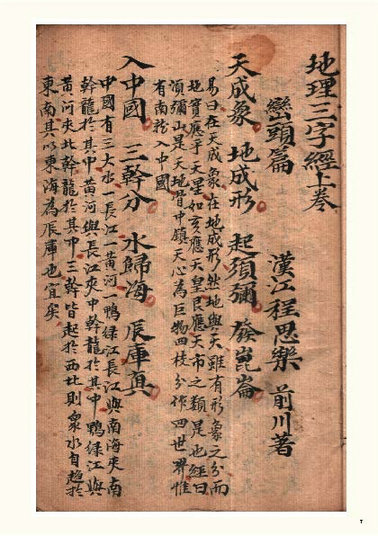 地理三字經上卷
巒頭篇
漢江程思樂 前川著
天成象 地成形 起須彌 發崑崙
易曰在天成象在地成形然地與天雖有形象之分而
地實應乎天星如亥應天皇艮應天市之類是也經曰
須彌山是天地骨中鎮天心為巨物四枝分作四世界惟
有南龍入中國
入中國 三幹分 水歸海 辰庫真
中國有三大水一長江一黃河一鴨綠江長江與南海夾南
幹龍於其中黃河與長江夾中幹龍於其中鴨綠江與
黃河夾北幹龍於其中三幹皆起於西北則衆水自趨於
東南其以東海為辰庫也宜矣